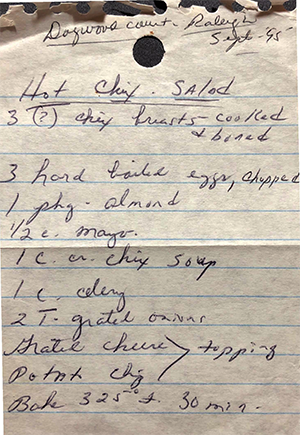 Dogwood court - Raleigh
Sept - 95
Hot Chix. Salad
3 (?) chix breasts - cooked
& boned
3 hard boiled eggs, chopped
1 pkg - almond
1/2 c. mayo.
1 c. cr. chix soup
1 c. celery
2 T - grated onions
Grated cheese
Potato chip > topping
Bake 325° f. 30 min.